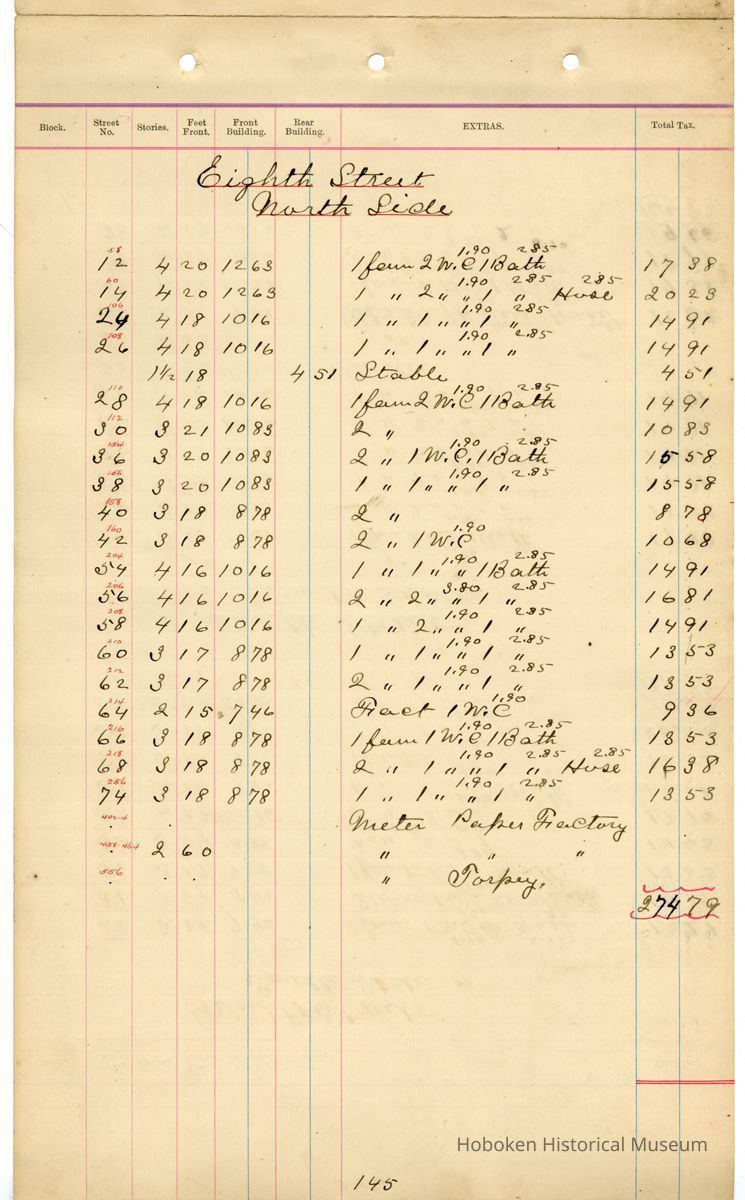 Block. Street No. Stories. Feet Front. Front Building. Rear Building. EXTRAS. Total Tax.
Eighth Street
North Side
58 1.90 2.85
12 4 20 12 63 1 fam 2 W.C 1 Bath 17 38
60 1.90 2.85 2.85
14 4 20 12 63 1 " 2 " " 1 " Hose 20 23
106 1.90 2.85
24 4 18 10 16 1 " 1 " " 1 " 14 91
108 1.90 2.85
26 4 18 10 16 1 " 1 " " 1 " 14 91
1½ 18 4 51 Stable 4 51
110 1.90 2.85
28 4 18 10 16 1 fam 2 W.C 1 Bath 14 91
112
30 3 21 10 83 2 " 10 83
154 1.90 2.85
36 3 20 10 83 2 " 1 W.C. 1 Bath 15 58
156 1.90 2.85
38 3 20 10 83 1 " 1 " " 1 " 15 58
158
40 3 18 8 78 2 " 8 78
160 1.90
42 3 18 8 78 2 " 1 W.C 10 68
204 1.90 2.85
54 4 16 10 16 1 " 1 " " 1 Bath 14 91
206 3.80 2.85
56 4 16 10 16 2 " 2 " " 1 " 16 81
208 1.90 2.85
58 4 16 10 16 1 " 2 " " 1 " 14 91
210 1.90 2.85
60 3 17 8 78 1 " 1 " " 1 " 13 53
212 1.90 2.85
62 3 17 8 78 2 " 1 " " 1 " 13 53
214 1.90
64 2 15 7 46 Fact 1 W.C 9 36
216 1.90 2.85
66 3 18 8 78 1 fam 1 W.C 1 Bath 13 53
218 1.90 2.85 2.85
68 3 18 8 78 2 " 1 " " 1 " Hose 16 38
256 1.90 2.85
74 3 18 8 78 1 " 1 " " 1 " 13 53
402-4 Meter Paper Factory
458-464 2 60 " " "
556 " Torpey.
274 79
Hoboken Historical Museum
145